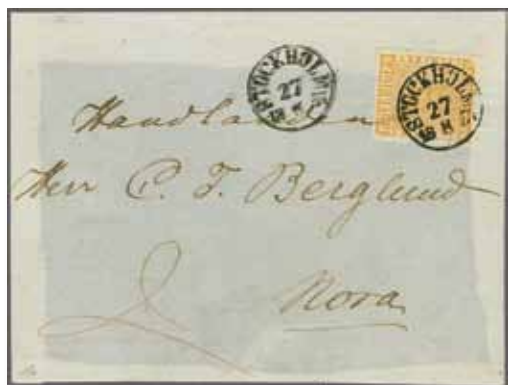 STOCKHOLM
27
STOCKHOLM
27
Handlanden
Herr C. F. Berglund
Nora